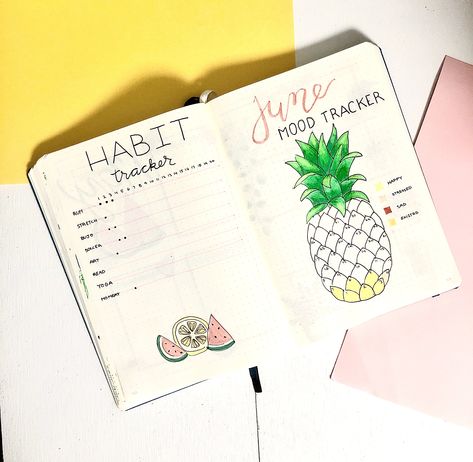 HABIT
tracker
STRETCH
BUJO
SOCCER
ART
READ
YOGA
June
MOOD TRACKER
HAPPY
STRESSED
SAD
EXCITED